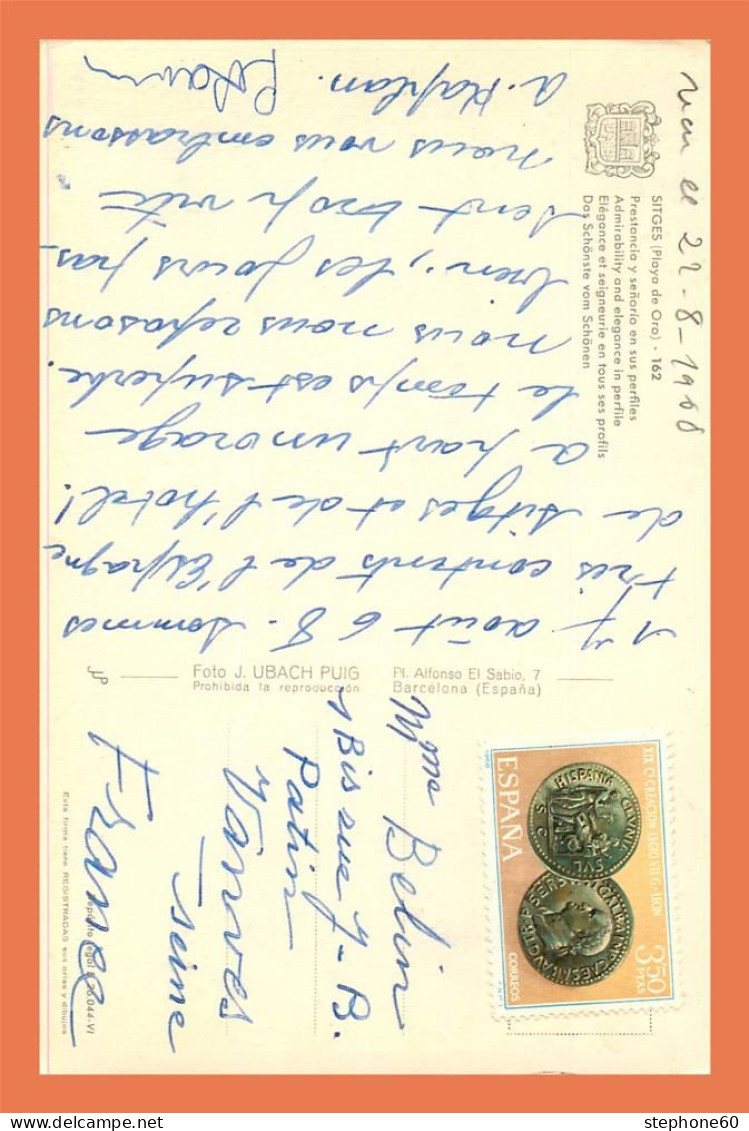 vu le 22-8-1968
SITGES (Playa de Oro) - 162
Prestancia y señorío en sus perfiles
Admirability and elegance in perfile
Elégance et seigneurie en tous ses profils
Das Schönste vom Schönen
17 août 68. Sommes
très contents de l'Espagne
de Sitges et de l'hotel!
a part un orage
le temps est superbe.
nous nous reposons
bien, les jours pas-
sent trop vite
nous vous embrassons
a. Kaplan.
Foto J. UBACH PUIG
Prohibida la reproducción
Pl. Alfonso El Sabio, 7
Barcelona (España)
Mme Belin
1 Bis rue J-B.
Patin
Vanves
Seine
France
ESPAÑA
XIX C. CREACION LEGIO VII G. LEON
HISPANIA CLVNIA SVL
S C
3,50
PTAS
CORREOS
Depósito Legal B. 26.044-VI
Esta firma tiene REGISTRADAS sus orlas y dibujos
stephone60